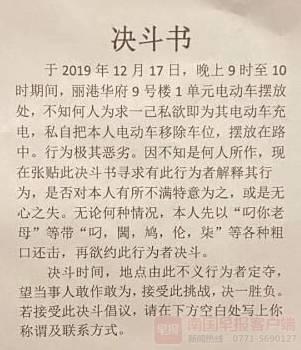 决斗书
于2019年12月17日，晚上9时至10
时期间，丽港华府9号楼1单元电动车摆放
处，不知何人为求一己私欲即为其电动车充
电，私自把本人电动车移除车位，摆放在路
中。行为极其恶劣。因不知是何人所作，现
在张贴此决斗书寻求有此行为者解释其行
为，是否对本人有所不满特意为之，或是无
心之失。无论何种情况，本人先以“叼你老
母”等带“叼，閪，鸠，伦，柒”等各种粗
口还击，再欲约此行为者决斗。
决斗时间，地点由此不义行为者定夺，
望当事人敢作敢为，接受此挑战，决一胜负。
若接受此决斗倡议，请在下方空白处写上你
称谓及联系方式。
早报 南国早报客户端
新闻热线 0771-5690127